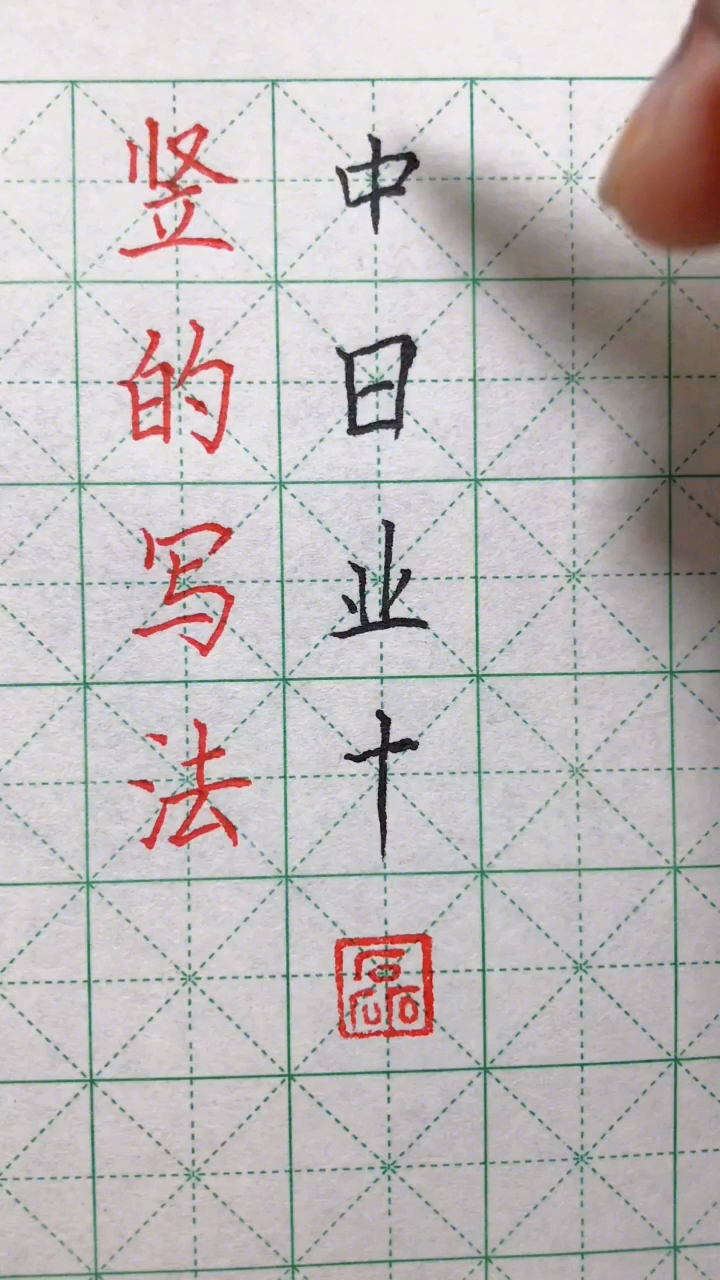 竖的写法
中日业十